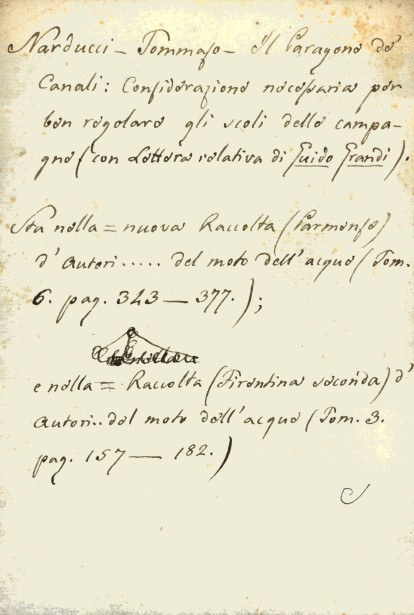 Narducci - Tommaso - Il Paragone de'
Canali: Considerazione necessaria per
ben regolare gli scoli delle campa-
gne (con Lettera relativa di Guido Grandi).
Sta nella = nuova Raccolta (Parmense)
d'autori..... del moto dell'acque (Tom.
6. pag. 343 — 377.);
e nella = Raccolta (Fiorentina seconda) d'
autori.. del moto dell'acque (Tom. 3.
pag. 157 — 182.)